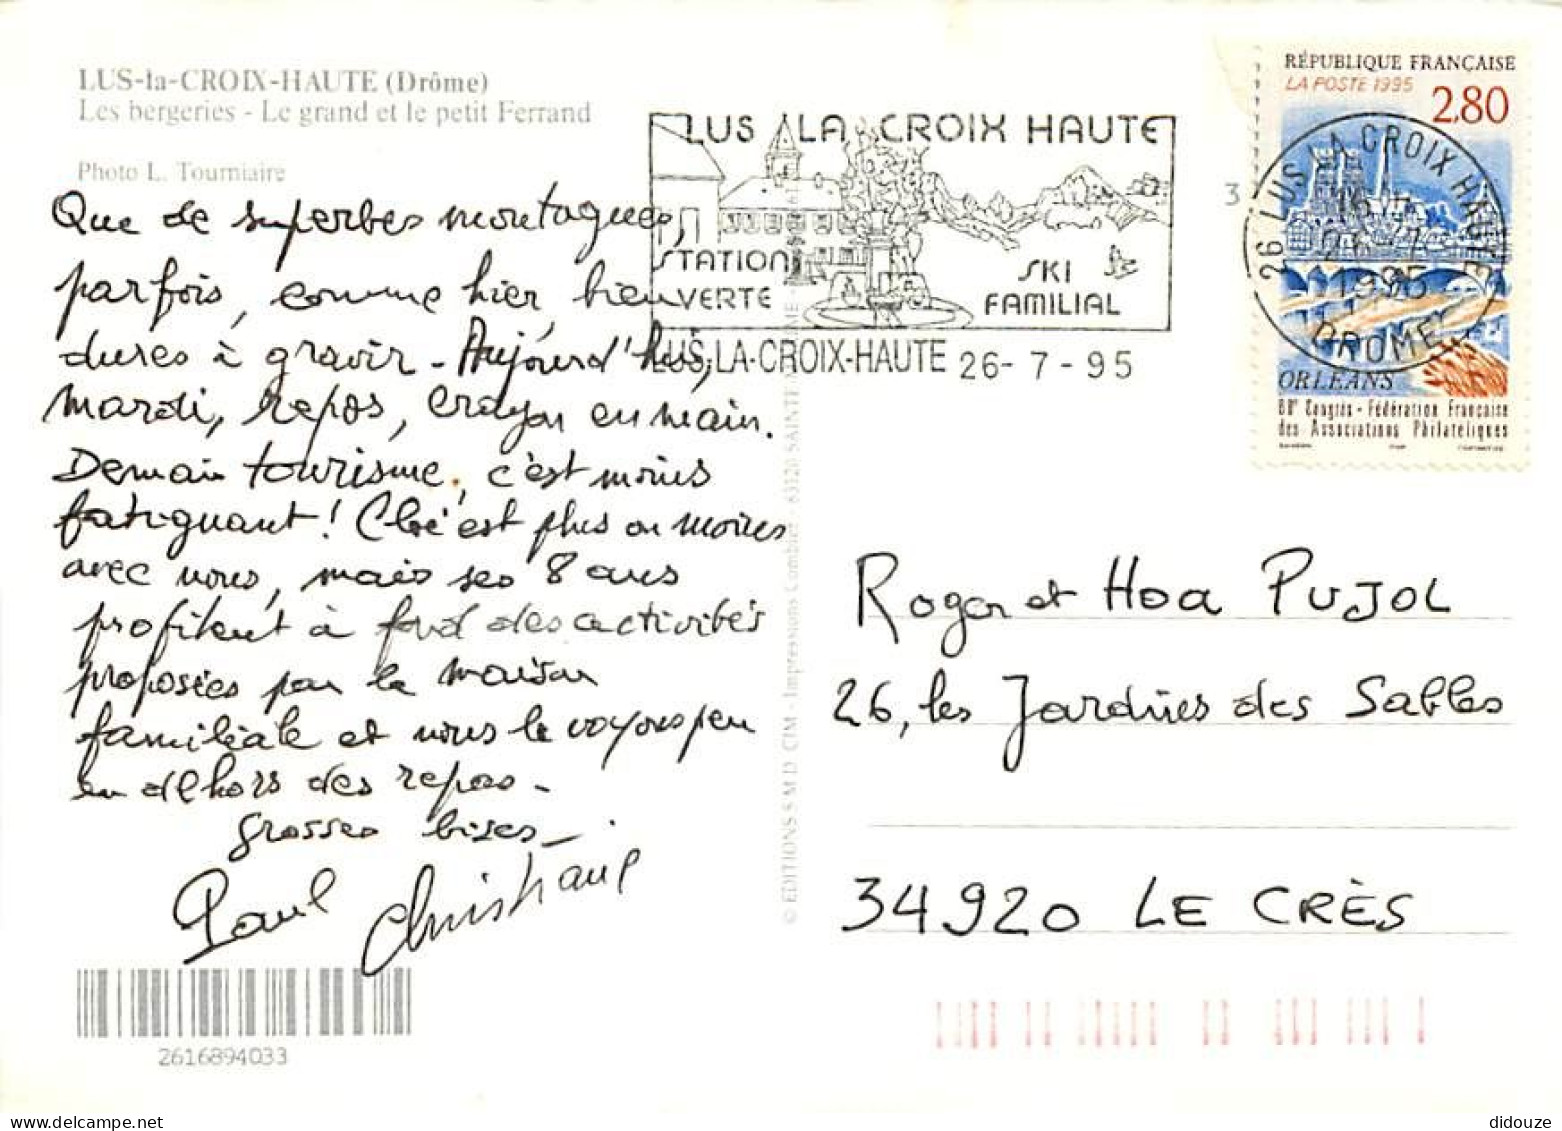 LUS-la-CROIX-HAUTE (Drôme)
Les bergeries - Le grand et le petit Ferrand
Photo L. Tourniaire
Que de superbes montagnes,
parfois, comme hier bien
dures à gravir - Aujourd'hui,
mardi, repos, crayon en main.
Demain tourisme, c'est moins
fatiguant ! Cloé est plus ou moins
avec nous, mais ses 8 ans
profitent à fond des activités
proposées par la maison
familiale et nous le voyons peu
en dehors des repas -
Grosses bises -
Paul Christiane
2616894033
© EDITIONS S M D CIM - Impressions Combier - 63120
LUS LA CROIX HAUTE
STATION
VERTE
SKI
FAMILIAL
LUS-LA-CROIX-HAUTE 26-7-95
3
RÉPUBLIQUE FRANÇAISE
LA POSTE 1995
2,80
26 LUS LA CROIX HAUTE
1995
DROME
ORLÉANS
68e Congrès - Fédération Française
des Associations Philatéliques
Roger et Hoa PUJOL
26, les Jardins des Sables
34920 LE CRÈS
didouze